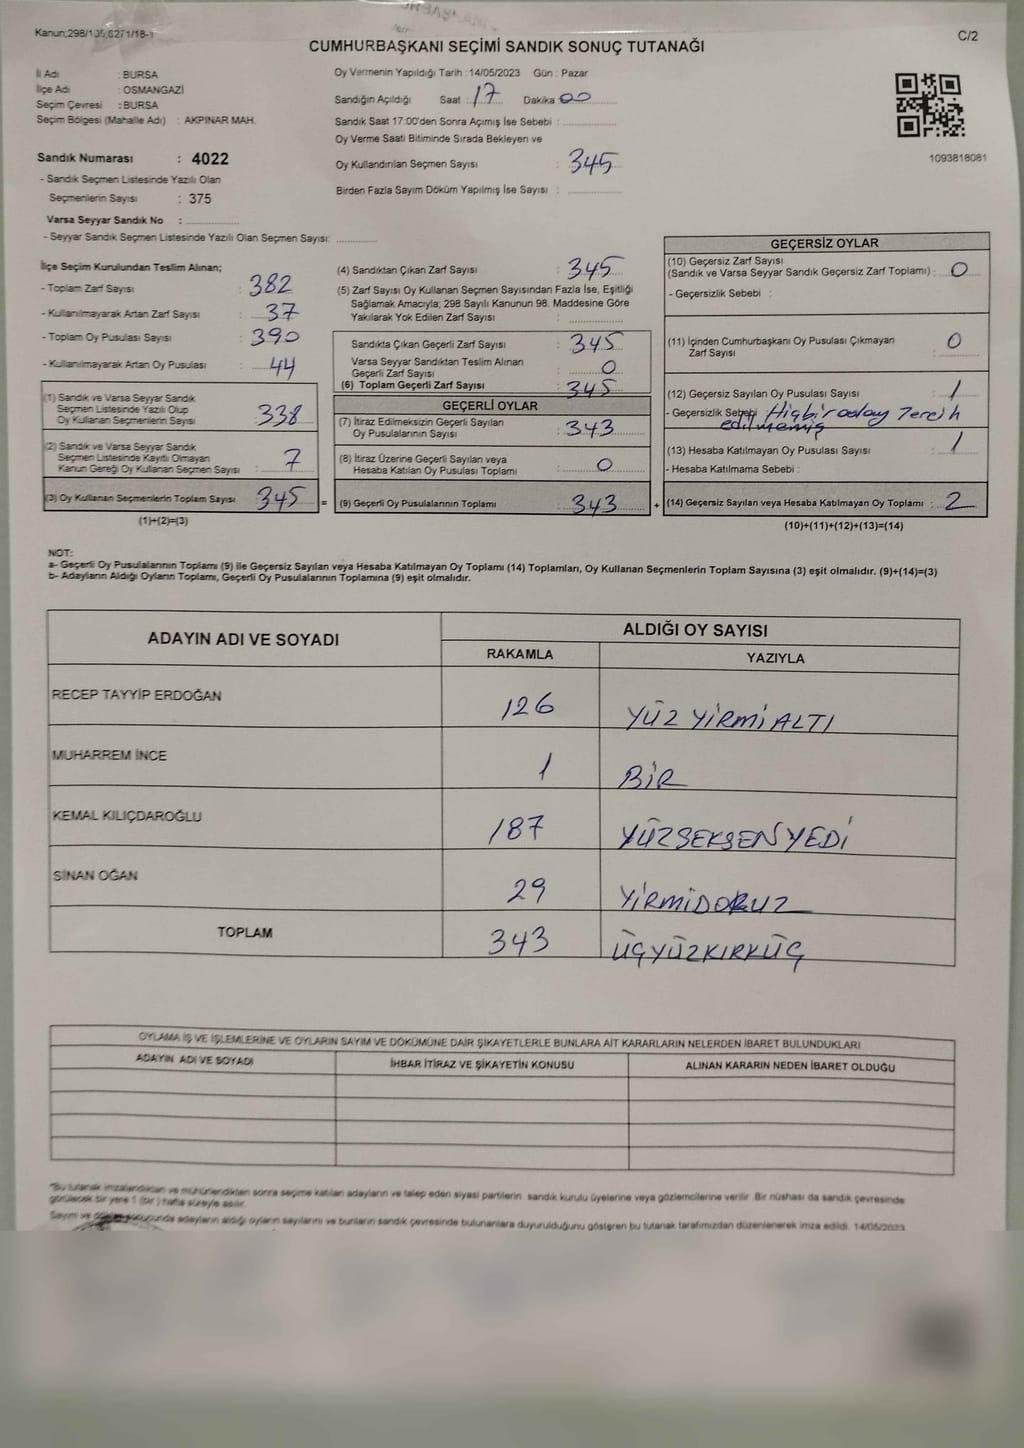 Kanun;298/105,6271/18-1
C/2
CUMHURBAŞKANI SEÇİMİ SANDIK SONUÇ TUTANAĞI
İl Adı : BURSA
İlçe Adı : OSMANGAZİ
Seçim Çevresi : BURSA
Seçim Bölgesi (Mahalle Adı) : AKPINAR MAH.
Oy Vermenin Yapıldığı Tarih : 14/05/2023 Gün : Pazar
Sandığın Açıldığı Saat : 17 Dakika 00
Sandık Saat 17:00'den Sonra Açımış İse Sebebi :
Oy Verme Saati Bitiminde Sırada Bekleyen ve
Oy Kullandırılan Seçmen Sayısı : 345
Birden Fazla Sayım Döküm Yapılmış İse Sayısı :
1093818081
Sandık Numarası : 4022
- Sandık Seçmen Listesinde Yazılı Olan
Seçmenlerin Sayısı : 375
Varsa Seyyar Sandık No :
- Seyyar Sandık Seçmen Listesinde Yazılı Olan Seçmen Sayısı:
İlçe Seçim Kurulundan Teslim Alınan;
- Toplam Zarf Sayısı : 382
- Kullanılmayarak Artan Zarf Sayısı : 37
- Toplam Oy Pusulası Sayısı : 390
- Kullanılmayarak Artan Oy Pusulası : 44
(1) Sandık ve Varsa Seyyar Sandık
Seçmen Listesinde Yazılı Olup
Oy Kullanan Seçmenlerin Sayısı : 338
(2) Sandık ve Varsa Seyyar Sandık
Seçmen Listesinde Kayıtlı Olmayan
Kanun Gereği Oy Kullanan Seçmen Sayısı : 7
(3) Oy Kullanan Seçmenlerin Toplam Sayısı : 345
(1)+(2)=(3)
=
(4) Sandıktan Çıkan Zarf Sayısı : 345
(5) Zarf Sayısı Oy Kullanan Seçmen Sayısından Fazla İse, Eşitliği
Sağlamak Amacıyla; 298 Sayılı Kanunun 98. Maddesine Göre
Yakılarak Yok Edilen Zarf Sayısı :
Sandıkta Çıkan Geçerli Zarf Sayısı : 345
Varsa Seyyar Sandıktan Teslim Alınan
Geçerli Zarf Sayısı : 0
(6) Toplam Geçerli Zarf Sayısı : 345
GEÇERLİ OYLAR
(7) İtiraz Edilmeksizin Geçerli Sayılan
Oy Pusulalarının Sayısı : 343
(8) İtiraz Üzerine Geçerli Sayılan veya
Hesaba Katılan Oy Pusulası Toplamı : 0
(9) Geçerli Oy Pusulalarının Toplamı : 343
+
GEÇERSİZ OYLAR
(10) Geçersiz Zarf Sayısı
(Sandık ve Varsa Seyyar Sandık Geçersiz Zarf Toplamı) : 0
- Geçersizlik Sebebi :
(11) İçinden Cumhurbaşkanı Oy Pusulası Çıkmayan
Zarf Sayısı : 0
(12) Geçersiz Sayılan Oy Pusulası Sayısı : 1
- Geçersizlik Sebebi : Hiçbir aday Tercih
edilmemiş
(13) Hesaba Katılmayan Oy Pusulası Sayısı : 1
- Hesaba Katılmama Sebebi :
(14) Geçersiz Sayılan veya Hesaba Katılmayan Oy Toplamı : 2
(10)+(11)+(12)+(13)=(14)
NOT:
a- Geçerli Oy Pusulalarının Toplamı (9) ile Geçersiz Sayılan veya Hesaba Katılmayan Oy Toplamı (14) Toplamları, Oy Kullanan Seçmenlerin Toplam Sayısına (3) eşit olmalıdır. (9)+(14)=(3)
b- Adayların Aldığı Oyların Toplamı, Geçerli Oy Pusulalarının Toplamına (9) eşit olmalıdır.
ADAYIN ADI VE SOYADI
ALDIĞI OY SAYISI
RAKAMLA YAZIYLA
RECEP TAYYİP ERDOĞAN 126 YÜZ YİRMİALTI
MUHARREM İNCE 1 BİR
KEMAL KILIÇDAROĞLU 187 YÜZSEKSENYEDİ
SİNAN OĞAN 29 YİRMİDOKUZ
TOPLAM 343 ÜÇYÜZKIRKÜÇ
OYLAMA İŞ VE İŞLEMLERİNE VE OYLARIN SAYIM VE DÖKÜMÜNE DAİR ŞİKAYETLERLE BUNLARA AİT KARARLARIN NELERDEN İBARET BULUNDUKLARI
ADAYIN ADI VE SOYADI İHBAR İTİRAZ VE ŞİKAYETİN KONUSU ALINAN KARARIN NEDEN İBARET OLDUĞU
"Bu tutanak imzalandıktan ve mühürlendikten sonra seçime katılan adayların ve talep eden siyasi partilerin sandık kurulu üyelerine veya gözlemcilerine verilir. Bir nüshası da sandık çevresinde
görülecek bir yere 1 (bir) hafta süreyle asılır.
Sayım ve döküm sonucunda adayların aldığı oyların sayılarını ve bunların sandık çevresinde bulunanlara duyurulduğunu gösteren bu tutanak tarafımızdan düzenlenerek imza edildi. 14/05/2023